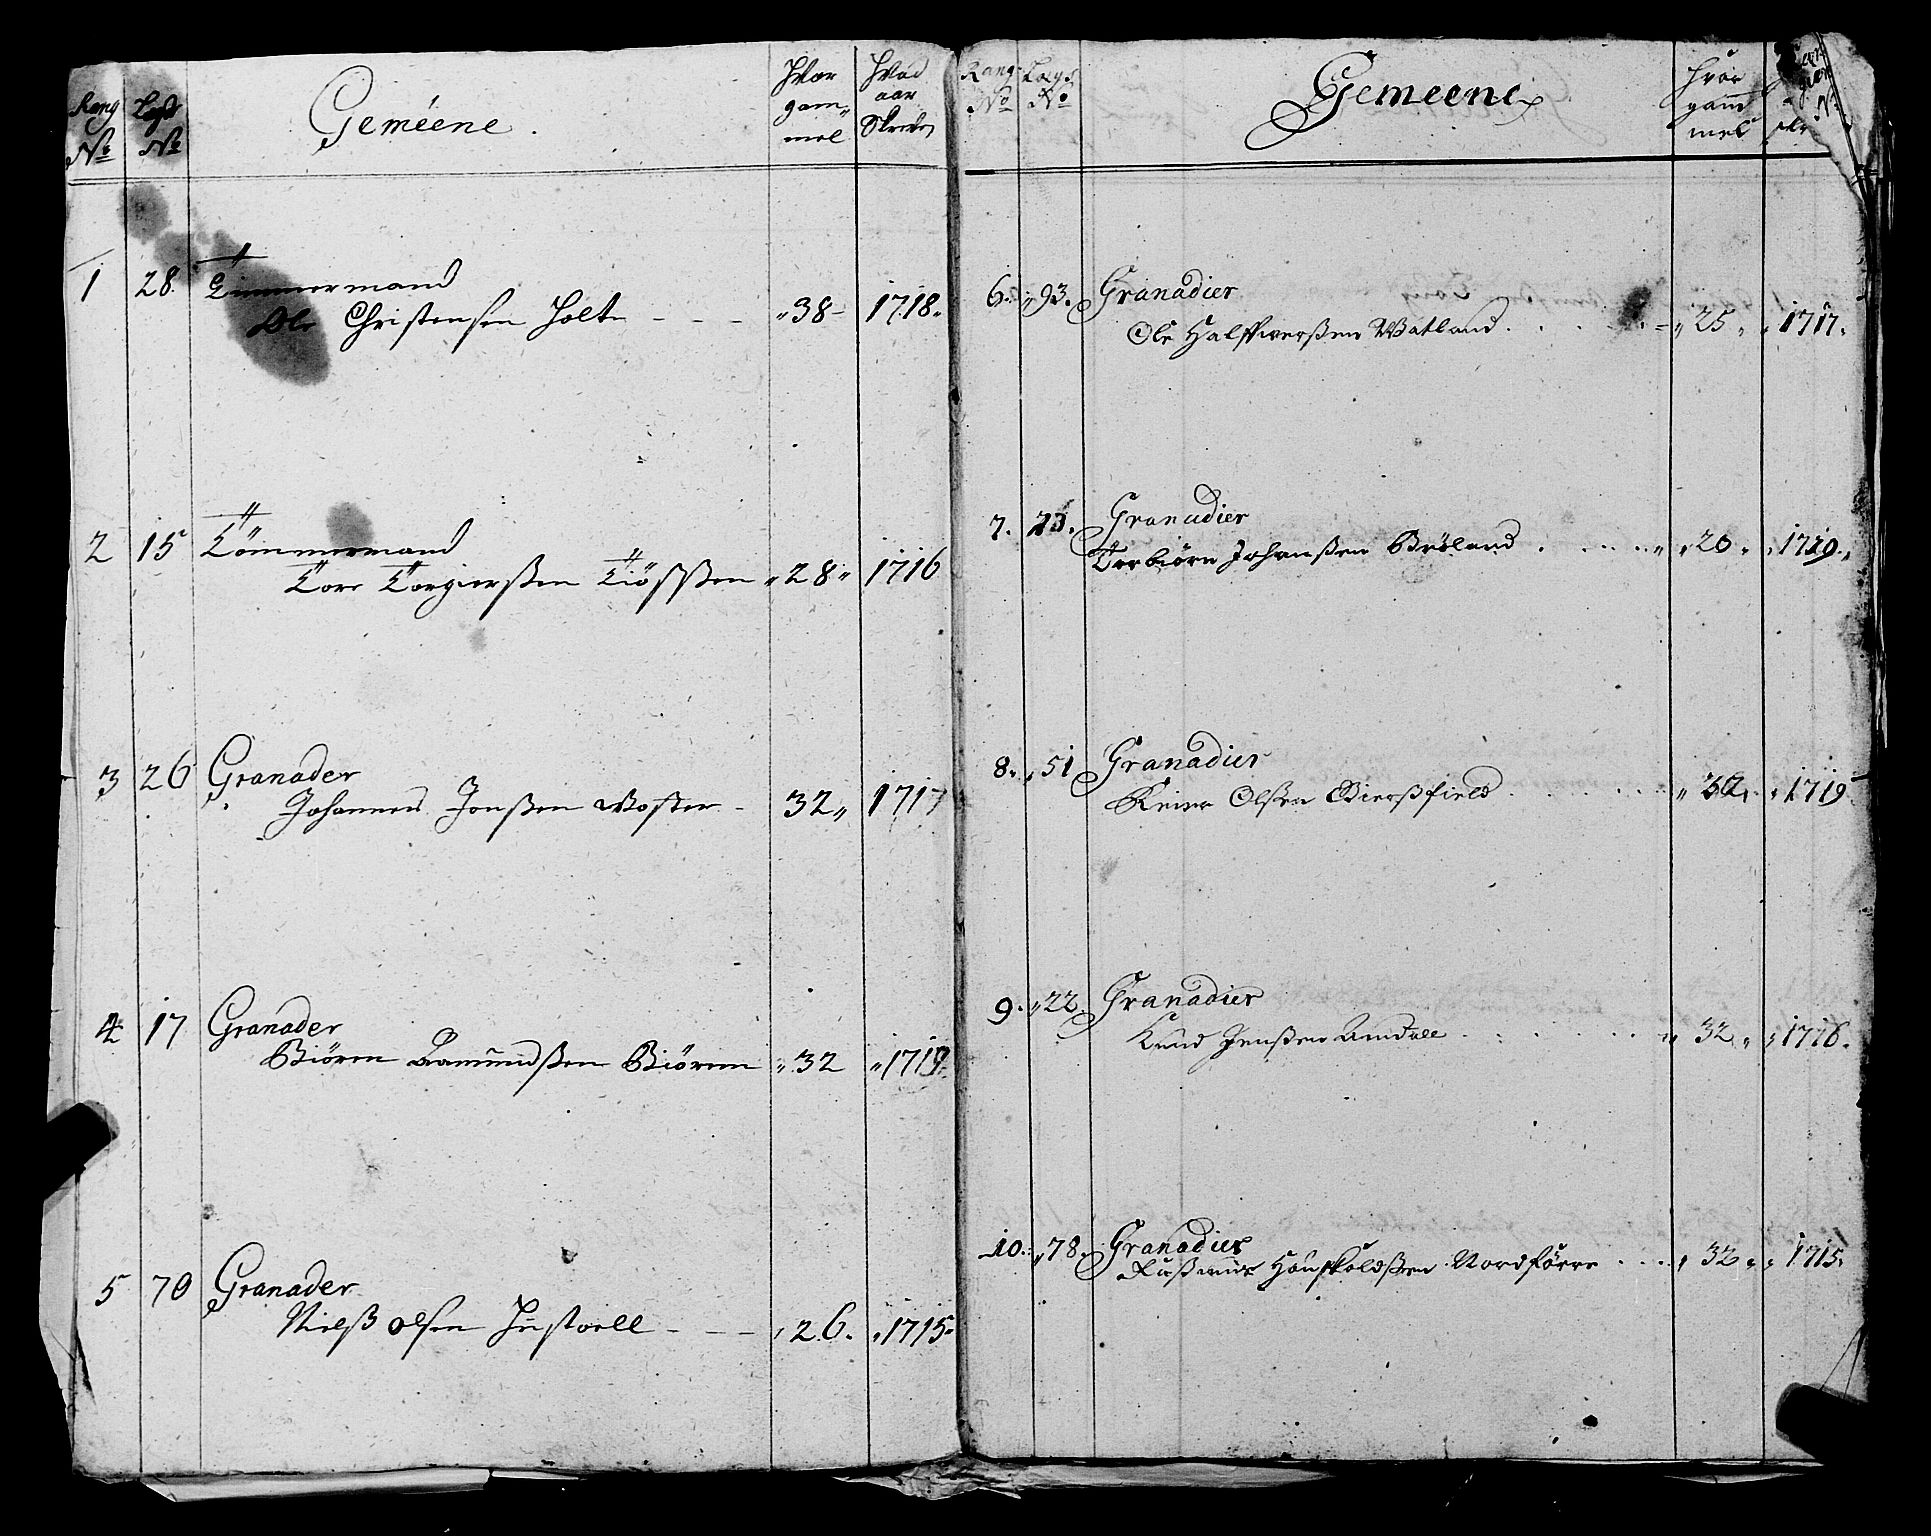 Rang No
Lægs No
Gemeene.
Hvor gam„ mel
Hvad aar Skreven
1 28. Timmermand
Ole Christensen Holte - - - „38- 1718„
2 15 Tömmermand
Tore Torgiersßen Tiösßen „28„ 1716
3 26 Granader
Johannes Jonßen Moster - 32„ 1717
4 17 Granader
Biörn Aamundßen Biörnn „32 „1719„
5 70 Granader
Nielß olsen - - - „26. „1715„
Rang No
Lægs No
Gemeene
Hvor gam mel
6. „93. Granadier
Ole Halffwerßen Watland . . . . „25„ „1717.
7. 23. Granadier
Torbiörn Johanßen . . . . „20„ „1719„
8. „51 Granadier
Reier Olßen Gierßfield . . . . . „32„ „1719
9. „22. Granadier
Knud Jenßen Amdall . . . . . „32„ „1716.
10. „78. Granadier
Raßmus Houskoldßen Nordförre . . . . „32„ „1715.